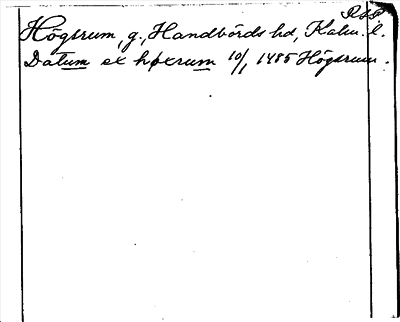 RAP
Högsrum, g., Handbörds hd, Kalm. l.
Datum ex høxrum 10/1 1485 Högsrum.